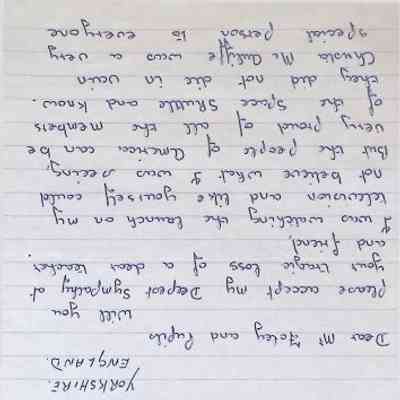 YORKSHIRE.
ENGLAND.
Dear Mr Foley and Pupils
Will you
please accept my Deepest Sympathy at
your tragic loss of a dear teacher
and friend,
I was watching the launch on my
television and like yourself could
not believe what I was seeing,
But the people of America can be
very proud of all the members
of the Space Shuttle and know.
they did not die in vain
Christa Mc Auliffe was a very
special person to everyone